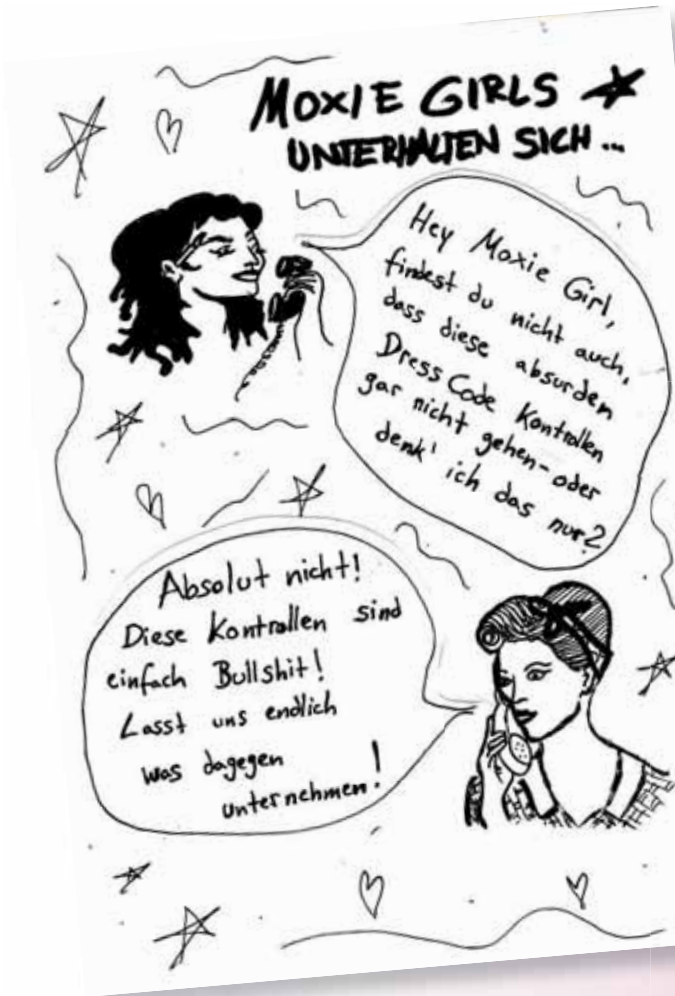 MOXIE GIRLS
UNTERHALTEN SICH...
Hey Moxie Girl,
findest du nicht auch,
dass diese absurden
Dress Code Kontrollen
gar nicht gehen - oder
denk' ich das nur?
Absolut nicht!
Diese Kontrollen sind
einfach Bullshit!
Lasst uns endlich
was dagegen
unternehmen!